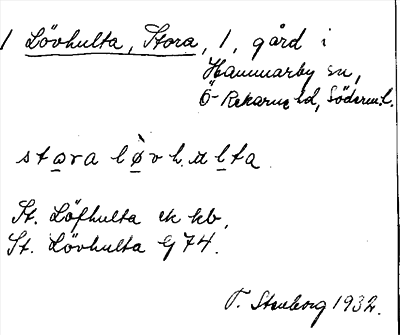 1 Lövhulta, Stora, 1, gård i
Hammarby sn,
Ö-Rekarne hd, Söderml.
stara løvhulta
St. Löfhulta ek kb.
St. Lövhulta G 74.
T. Stenborg 1932.